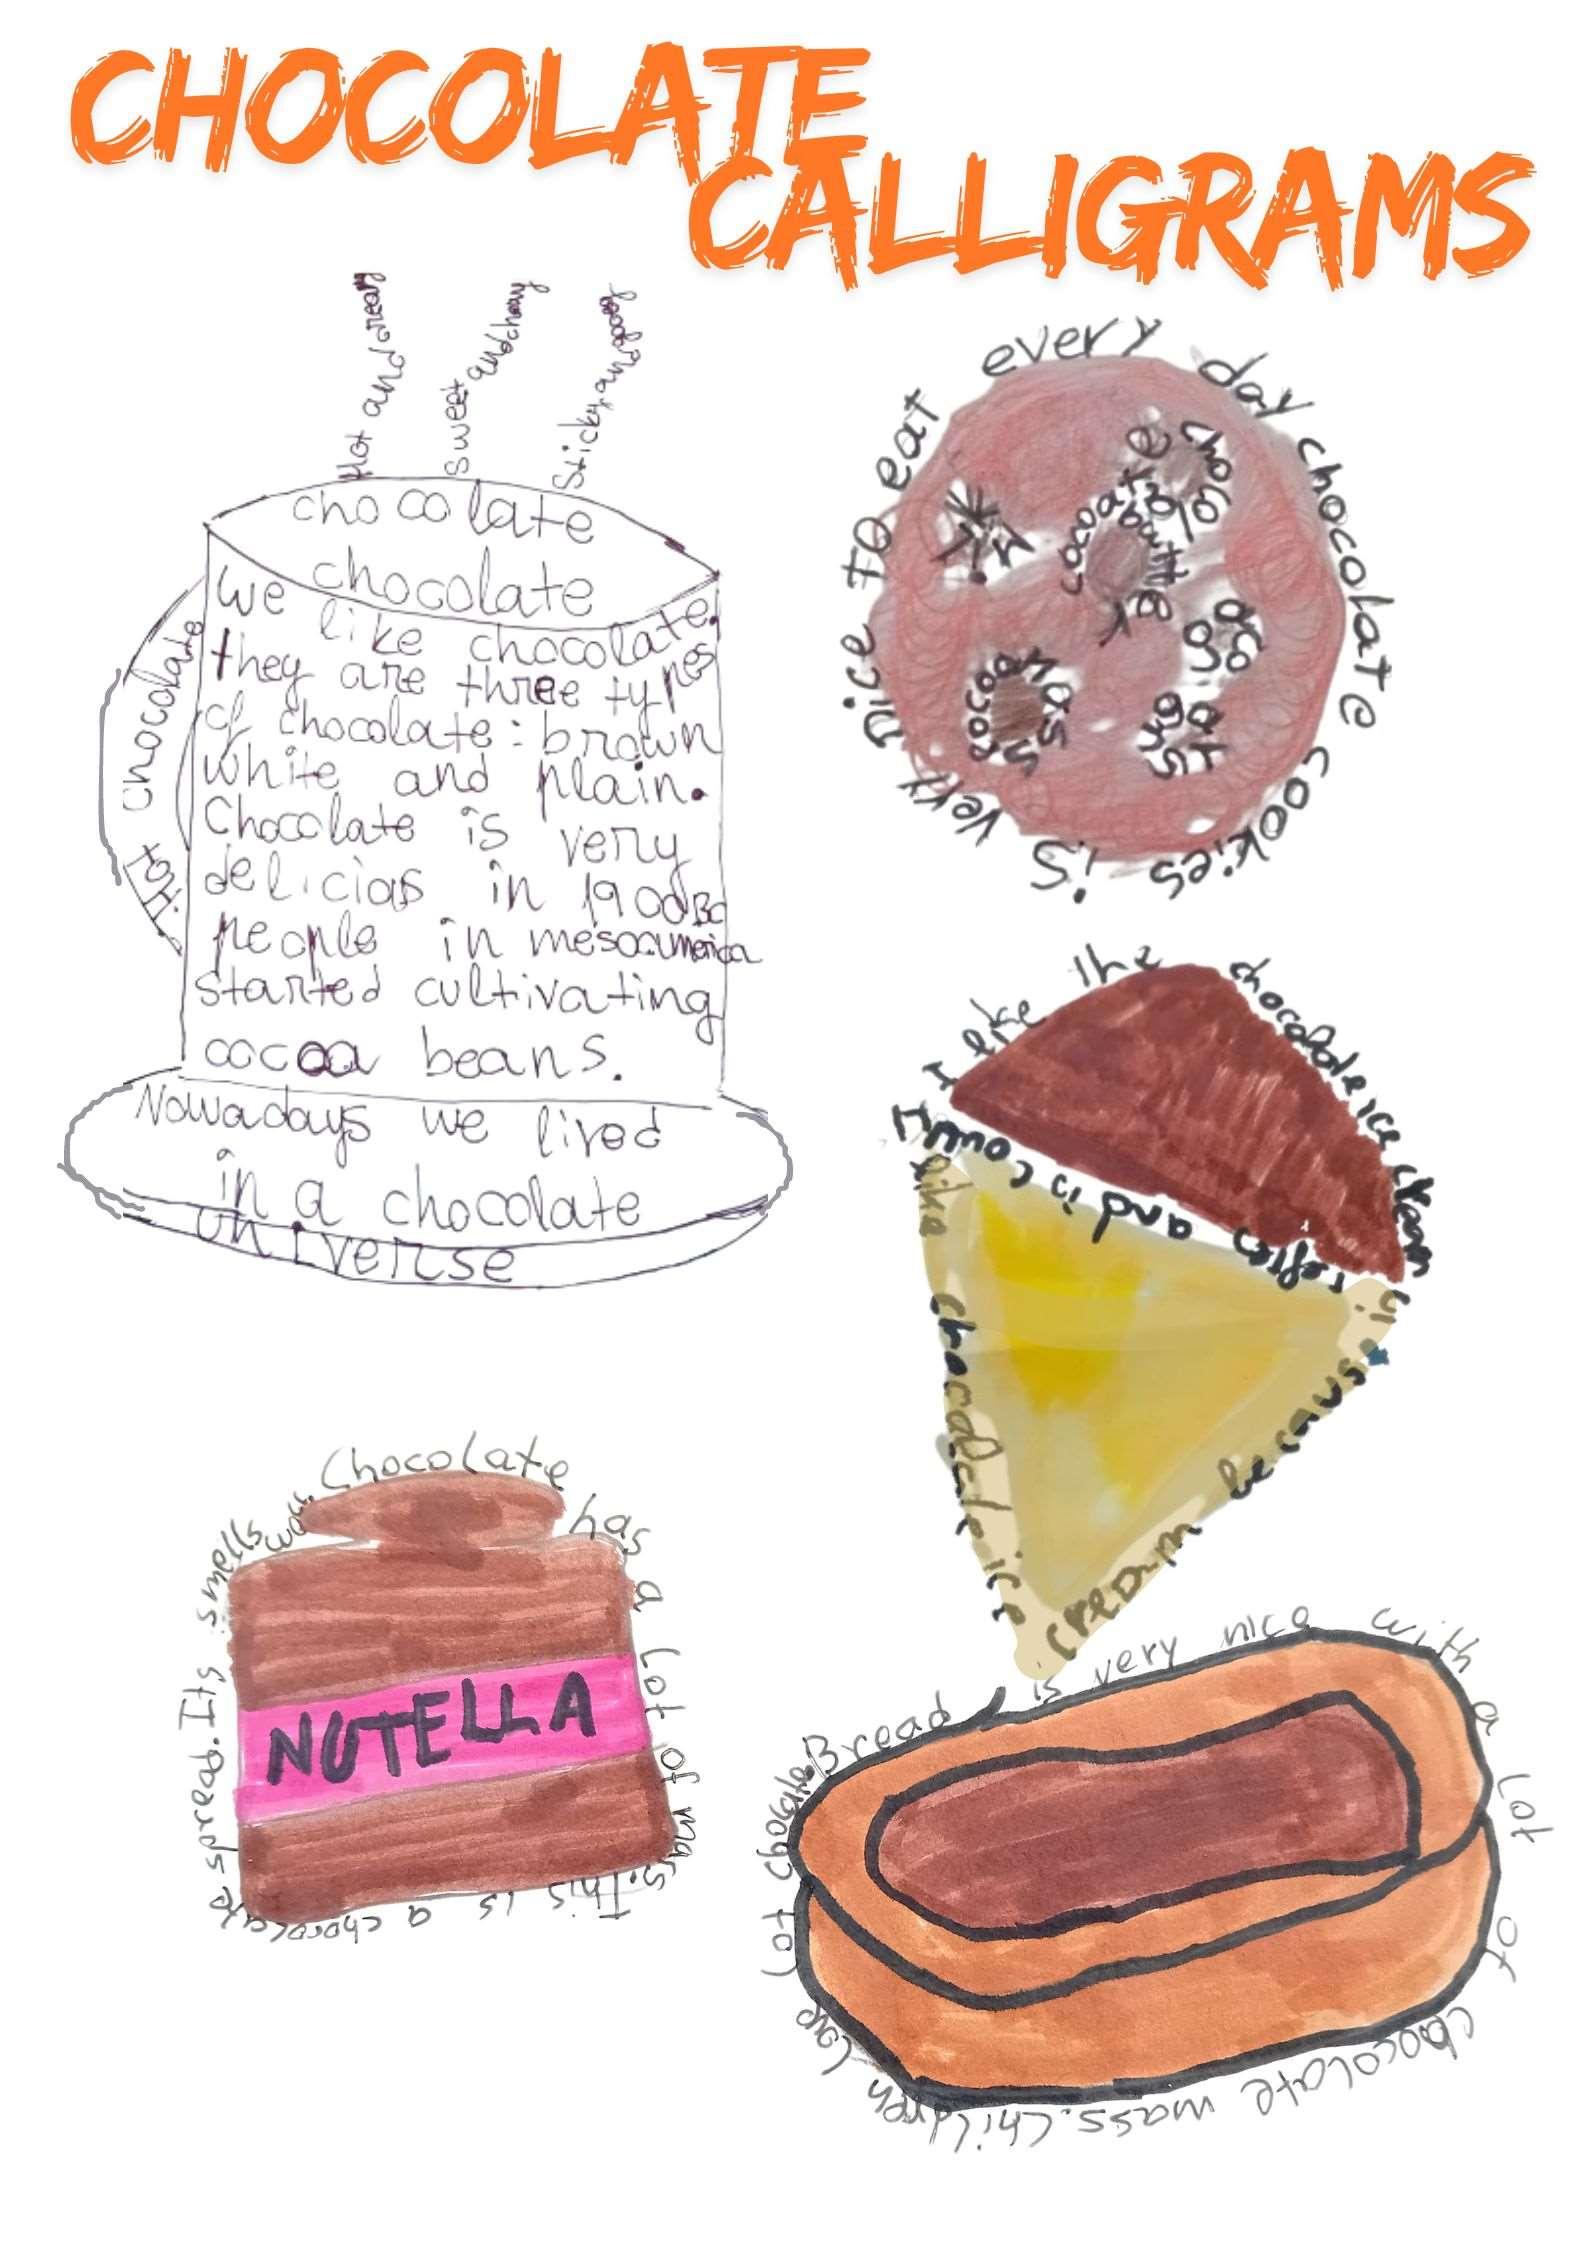 CHOCOLATE
CALLIGRAMS
Hot and creamy
Sweet and
Sticky and
chocolate
chocolate
Hot chocolate
We like chocolate.
they are three types
of chocolate: brown
white and plain.
Chocolate is very
delicias in 1900BC
people in mesoamerica
started cultivating
cocoa beans.
Nowadays we lived
in a chocolate
universe
chocolate cookies is very nice to eat every day
choco
cocoa
butter
milk
cocoa
mass
I like the chocolate ice cream in
I like chocolate ice cream becaus
and is
Chocolate has a lot of mass. This is a chocolate spread. Its smells
NUTELLA
Bread is very nice with a lot of chocolate mass. Children
lot